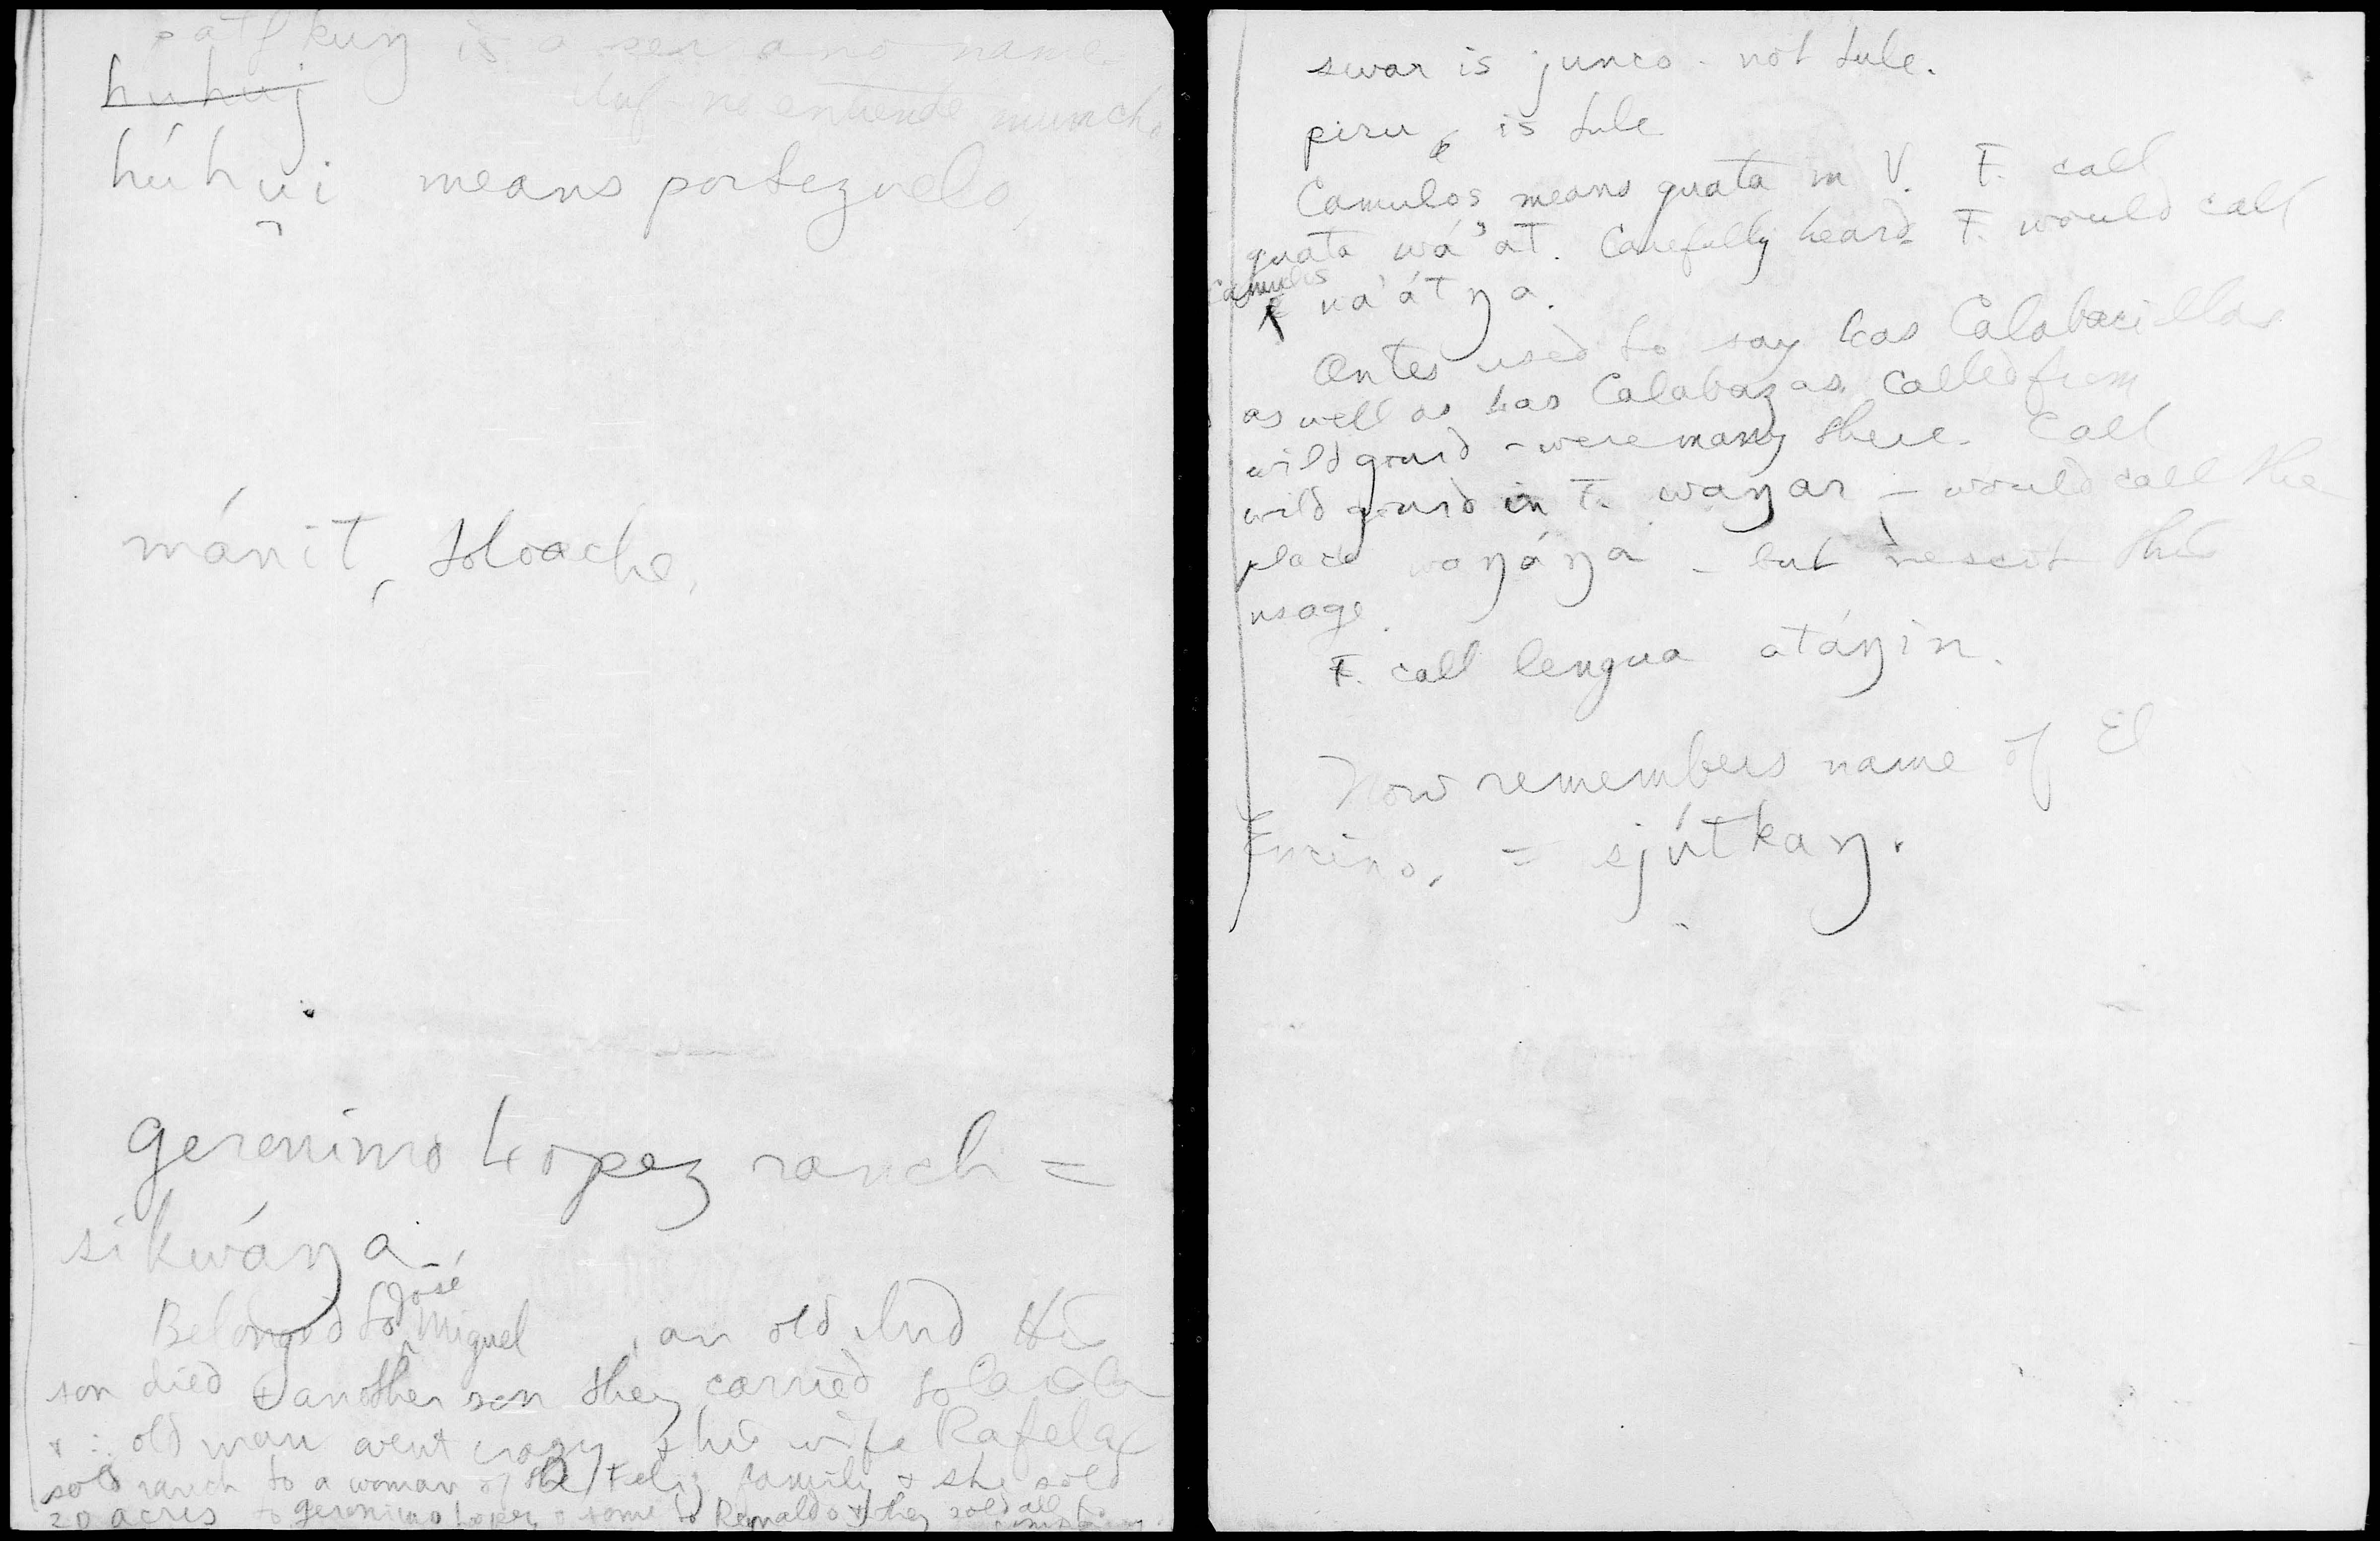 patʃkuŋ is a serrano name.
no entiende muncho
húhuj
húhu̯i means portezuelo,
mánit, toloache,
Geronimo Lopez ranch =
síkwáŋa
Belonged to José Miguel , an old Ind His
son died & another son they carried to la
& ∴ old man went crazy & his wife Rafela
sold ranch to a woman of the Feliz family & she sold
20 acres to Geronimo Lopez & some to Reynaldo & they sold all to
swar is junco - not tule.
piru is tule
Camulos means guata in V. F. call
guata wá'at. Carefully heard F. would call
Camulos wa'átŋa.
Antes used to say Las Calabacillas
as well as Las Calabazas. Called from
wild gourd - were many there. Call
wild gourd in F. waŋar - would call the
place waŋáŋa - but nescit this
usage.
F. call lengua atáŋin.
Now remembers name of El
Encino, = sjútkaŋ.